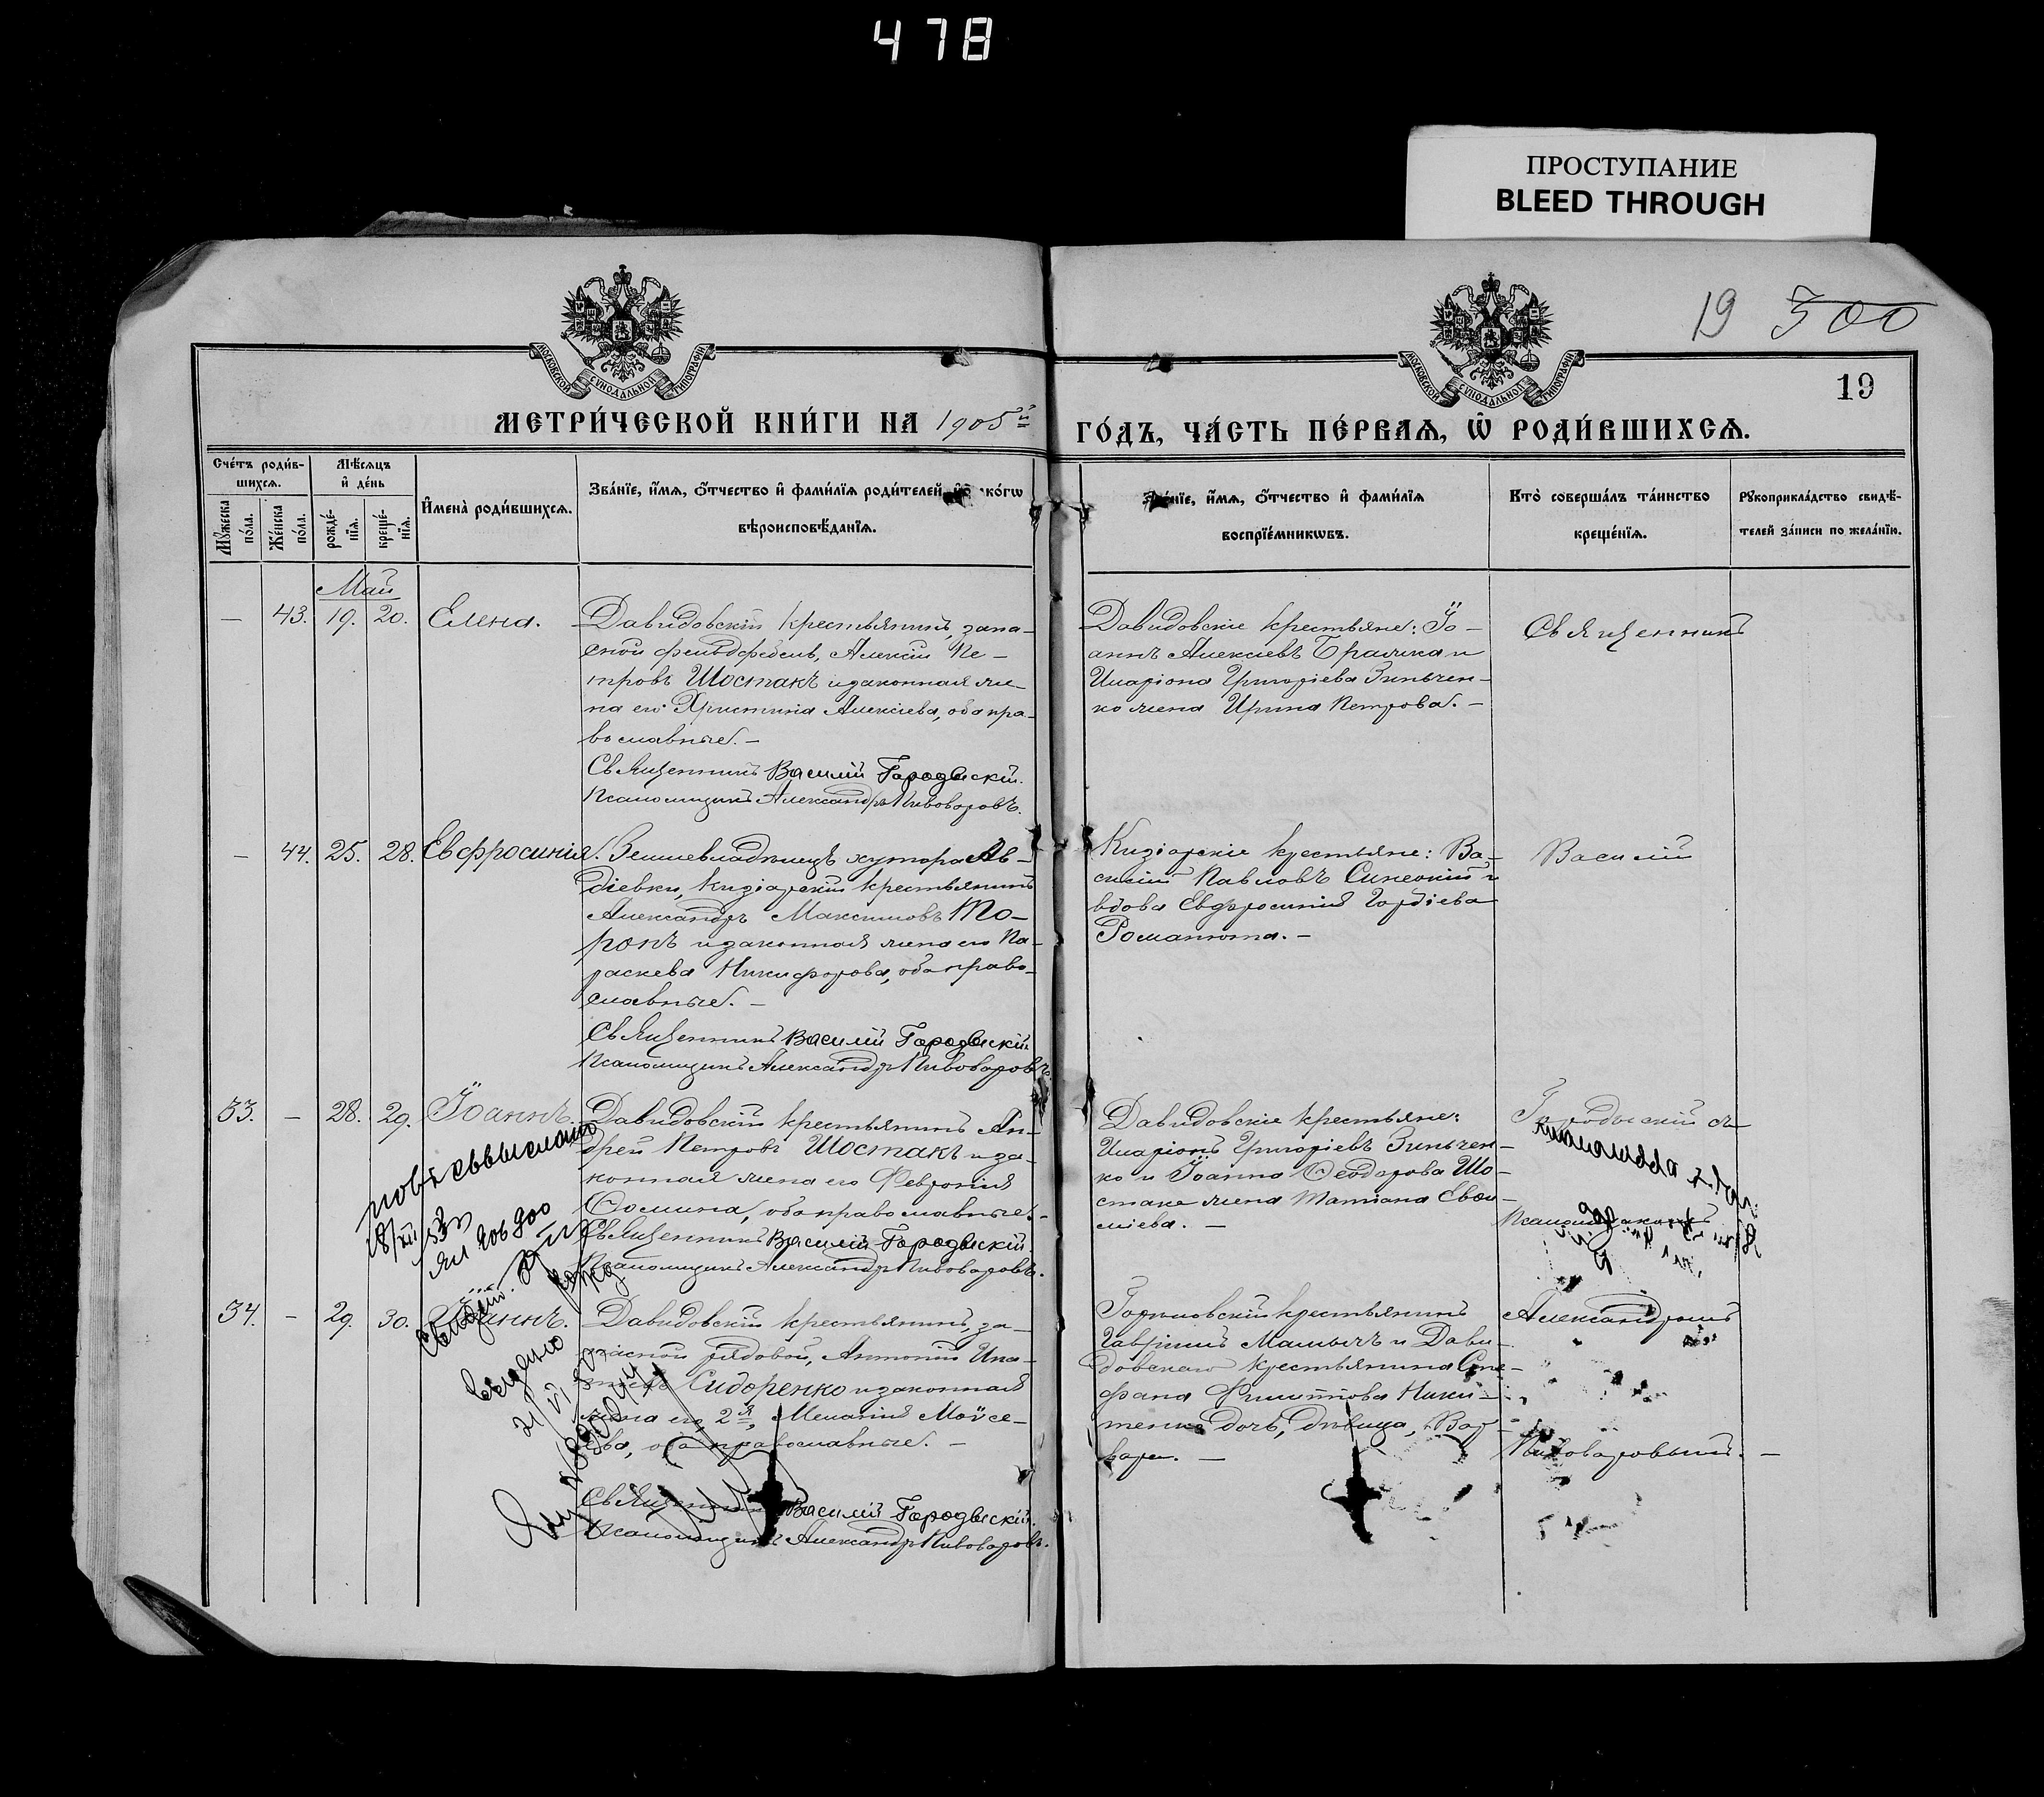 478
ПРОСТУПАНИЕ
BLEED THROUGH
19 500
19
МОСКОВСКОЙ СУНОДАЛЬНОЙ ТИПОГРАФІИ
МОСКОВСКОЙ СУНОДАЛЬНОЙ ТИПОГРАФІИ
МЕТРИ́ЧЕСКОЙ КНИ́ГИ НА 1905й
ГО́ДЪ, ЧА́СТЬ ПЕ́РВАЯ, Ѿ РОДИ́ВШИХСЯ.
Сче́тъ роди́в-
шихся.
Мѣ́сяцъ
и де́нь
Му́жеска по́ла.
Же́нска по́ла.
рожде́-
нїя.
креще́-
нїя.
Имена̀ роди́вшихся.
Зва́нїе, и́мя, о́тчество и фами́лїя роди́телей, и ко́гѡ
вѣроисповѣ́данїя.
Зва́нїе, и́мя, о́тчество и фами́лїя
воспрїе́мникѡвъ.
Кто̀ соверша́лъ та́инство
креще́нїя.
Рукоприкла́дство свидѣ́-
телей за́писи по жела́нїю.
Май
— 43. 19. 20. Елена.
Давидовскій крестьянинъ, запа-
сной фельдфебель, Алексій Пе-
тровъ Шостакъ и законная же-
на его Христина Алексіева, оба пра-
вославные. —
Священникъ Василій Городыскій.
Псаломщикъ Александръ Пивоваровъ.
Давидовскіе крестьяне: Іо-
аннъ Алексіевъ Бражка и
Иларіона Григоріева Зинчен-
ко жена Ирина Петрова. —
Священникъ
— 44. 25. 28. Евфросинія.
Землевладѣлецъ хутора Ав-
діевки, Кизіарскій крестьянинъ
Александръ Максимовъ То-
ронъ и законная жена его Па-
раскева Никифорова, оба право-
славные. —
Священникъ Василій Городыскій
Псаломщикъ Александръ Пивоваровъ.
Кизіарскіе крестьяне: Ва-
силій Павловъ Синеокій и
вдова Евфросинія Гордіева
Романюта. —
Василій
33. — 28. 29. Іоаннъ.
Давидовскій крестьянинъ Ан-
дрей Петровъ Шостакъ и за-
конная жена его Февронія
Ѳомина, оба православные. —
Священникъ Василій Городыскій.
Псаломщикъ Александръ Пивоваровъ.
Давидовскіе крестьяне:
Иларіонъ Григоріевъ Зинчен-
ко и Іоанна Ѳеодорова Шо-
стака жена Татіана Евѳи-
міева. —
Городыскій съ
34. — 29. 30. Іоаннъ.
Давидовскій крестьянинъ, за-
пасной рядовой, Антоній
Сидоренко и законная
жена его, 2я, Меланія Моѵсе-
ева, оба православные. —
Священникъ Василій Городыскій.
Псаломщикъ Александръ Пивоваровъ.
Гавріилъ и Дави-
довскаго крестьянина Сте-
фана Филиппова Ники-
тенко дочь, дѣвица, Вар-
вара. —
Александромъ
Пивоваровымъ. —